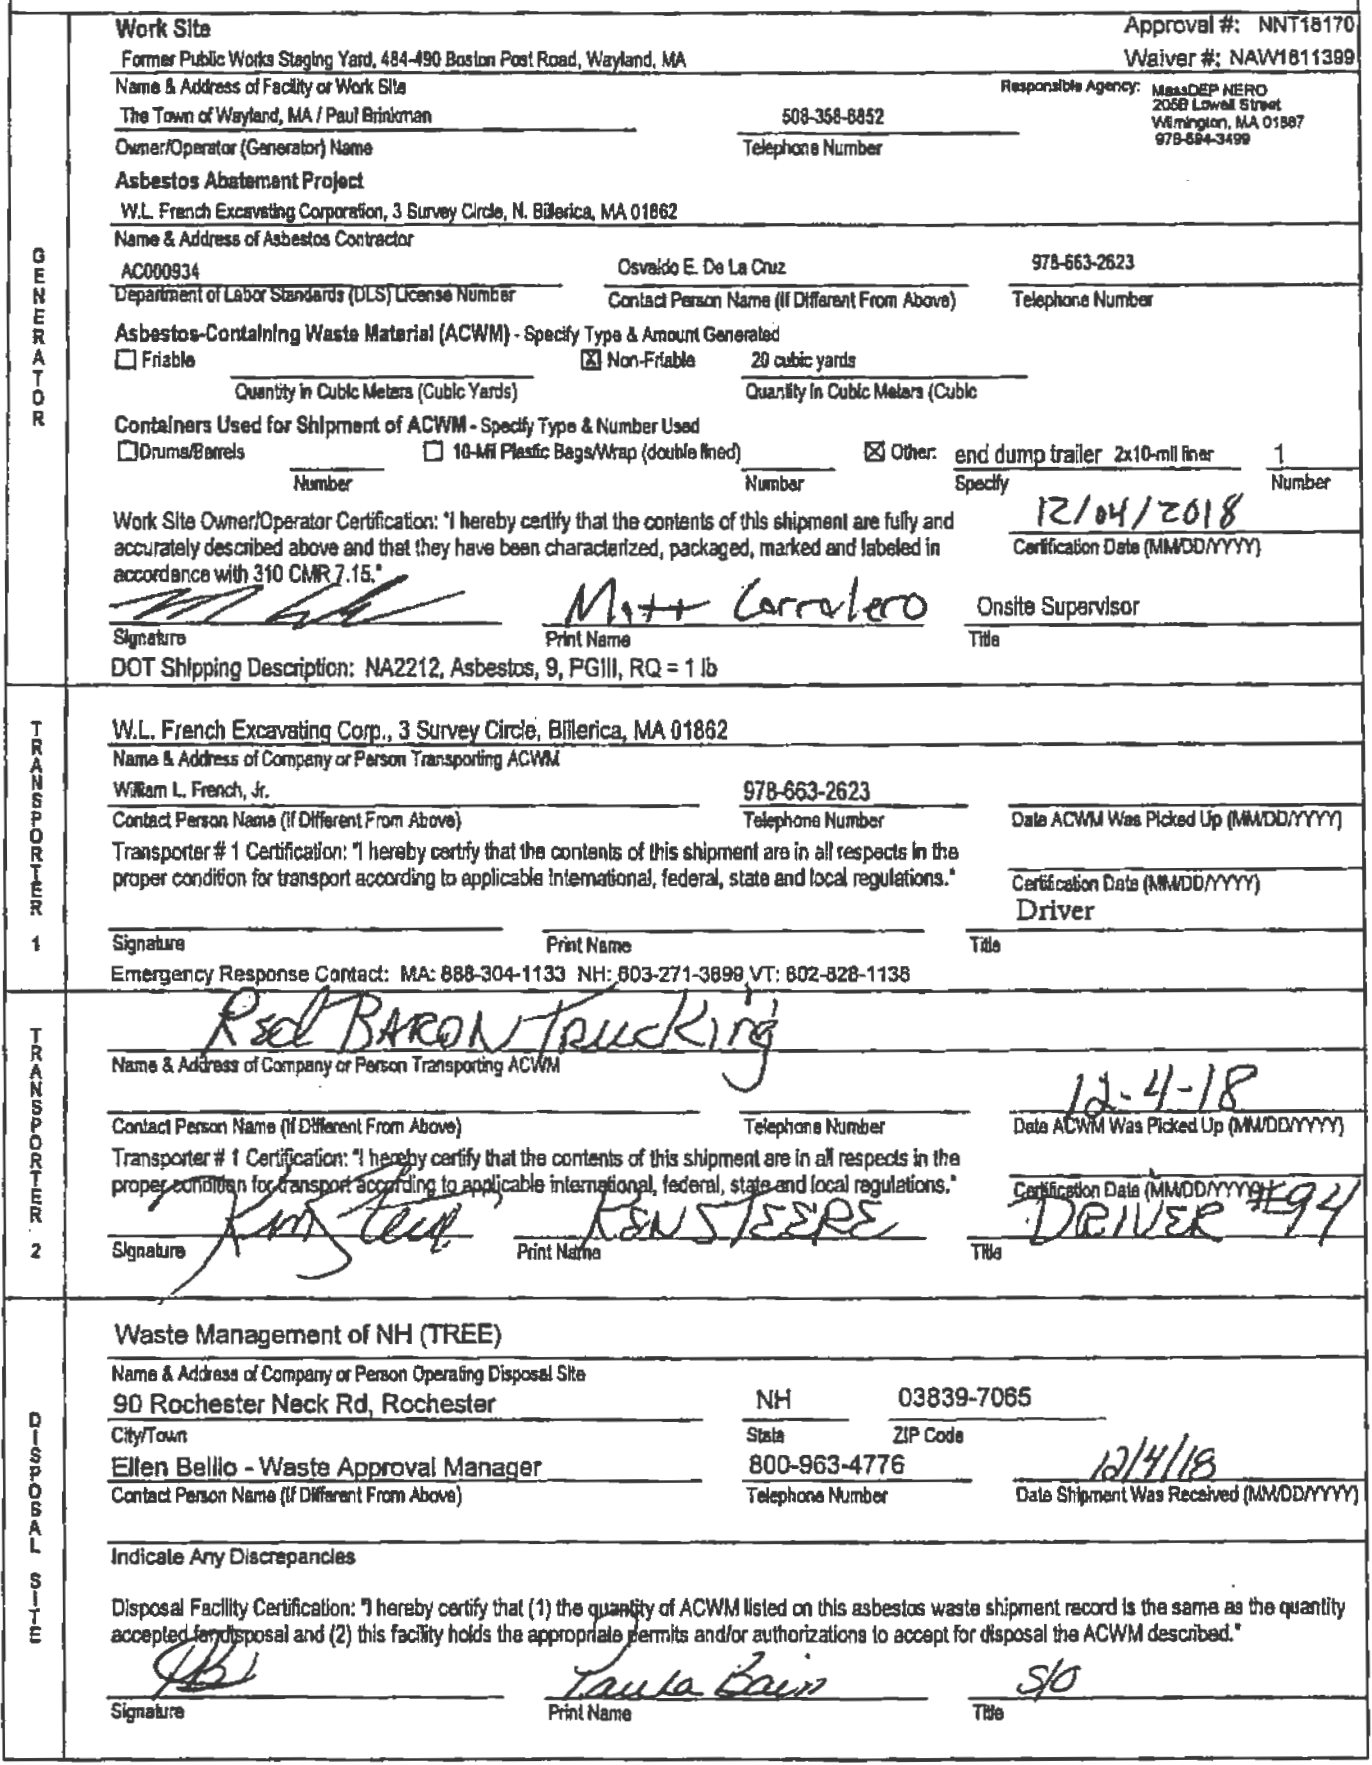 Work Site
Approval #: NNT18170
Former Public Works Staging Yard, 484-490 Boston Post Road, Wayland, MA
Waiver #: NAW1811399
Name & Address of Facility or Work Site
Responsible Agency: MassDEP NERO
205B Lowell Street
Wilmington, MA 01887
978-694-3499
The Town of Wayland, MA / Paul Brinkman
508-358-6852
Owner/Operator (Generator) Name
Telephone Number
Asbestos Abatement Project
W.L. French Excavating Corporation, 3 Survey Circle, N. Billerica, MA 01862
Name & Address of Asbestos Contractor
AC000934
Osvaldo E. De La Cruz
978-663-2623
Department of Labor Standards (DLS) License Number
Contact Person Name (If Different From Above)
Telephone Number
Asbestos-Containing Waste Material (ACWM) - Specify Type & Amount Generated
Friable
X Non-Friable
20 cubic yards
Quantity in Cubic Meters (Cubic Yards)
Quantity in Cubic Meters (Cubic
Containers Used for Shipment of ACWM - Specify Type & Number Used
Drums/Barrels
10-Mil Plastic Bags/Wrap (double lined)
X Other: end dump trailer 2x10-mil liner 1
Number
Number
Specify
Number
Work Site Owner/Operator Certification: "I hereby certify that the contents of this shipment are fully and
accurately described above and that they have been characterized, packaged, marked and labeled in
accordance with 310 CMR 7.15."
12/04/2018
Certification Date (MM/DD/YYYY)
Matt Carralero
Onsite Supervisor
Signature
Print Name
Title
DOT Shipping Description: NA2212, Asbestos, 9, PGIII, RQ = 1 lb
GENERATOR
W.L. French Excavating Corp., 3 Survey Circle, Billerica, MA 01862
Name & Address of Company or Person Transporting ACWM
William L. French, Jr.
978-663-2623
Contact Person Name (If Different From Above)
Telephone Number
Date ACWM Was Picked Up (MM/DD/YYYY)
Transporter # 1 Certification: "I hereby certify that the contents of this shipment are in all respects in the
proper condition for transport according to applicable international, federal, state and local regulations."
Certification Date (MM/DD/YYYY)
Driver
Signature
Print Name
Title
Emergency Response Contact: MA: 888-304-1133 NH: 603-271-3899 VT: 802-828-1138
TRANSPORTER 1
Red BARON Trucking
Name & Address of Company or Person Transporting ACWM
12-4-18
Contact Person Name (If Different From Above)
Telephone Number
Date ACWM Was Picked Up (MM/DD/YYYY)
Transporter # 1 Certification: "I hereby certify that the contents of this shipment are in all respects in the
proper condition for transport according to applicable international, federal, state and local regulations."
Certification Date (MM/DD/YYYY)
Ken Steere
KEN STEERE
DRIVER #94
Signature
Print Name
Title
TRANSPORTER 2
Waste Management of NH (TREE)
Name & Address of Company or Person Operating Disposal Site
90 Rochester Neck Rd, Rochester
NH
03839-7065
City/Town
State
ZIP Code
Ellen Bellio - Waste Approval Manager
800-963-4776
12/4/18
Contact Person Name (If Different From Above)
Telephone Number
Date Shipment Was Received (MM/DD/YYYY)
Indicate Any Discrepancies
Disposal Facility Certification: "I hereby certify that (1) the quantity of ACWM listed on this asbestos waste shipment record is the same as the quantity
accepted for disposal and (2) this facility holds the appropriate permits and/or authorizations to accept for disposal the ACWM described."
Paula Bain
S/O
Signature
Print Name
Title
DISPOSAL SITE